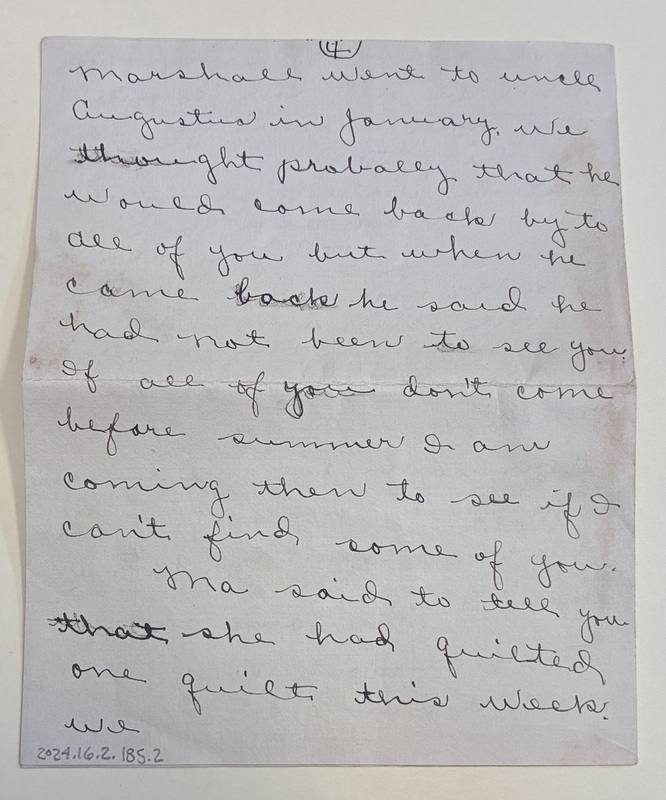 4
Marshall went to uncle
Augustus in January. We
thought probally that he
would come back by to
all of you but when he
came back he said he
had not been to see you.
If all of you don't come
before summer I am
coming then to see if I
can't find some of you.
Ma said to tell you
that she had quilted
one quilt this week.
we
2024.16.2.185.2